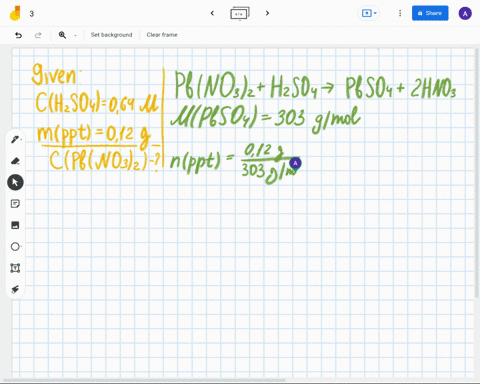 3
Share
A
Set background
Clear frame
Given:
C(H₂SO₄)=0,64 M
m(ppt)=0,12 g
C(Pb(NO₃)₂)-?
Pb(NO₃)₂+H₂SO₄→PbSO₄+2HNO₃
M(PbSO₄)=303 g/mol
n(ppt)=0,12 g/303 g/m
A